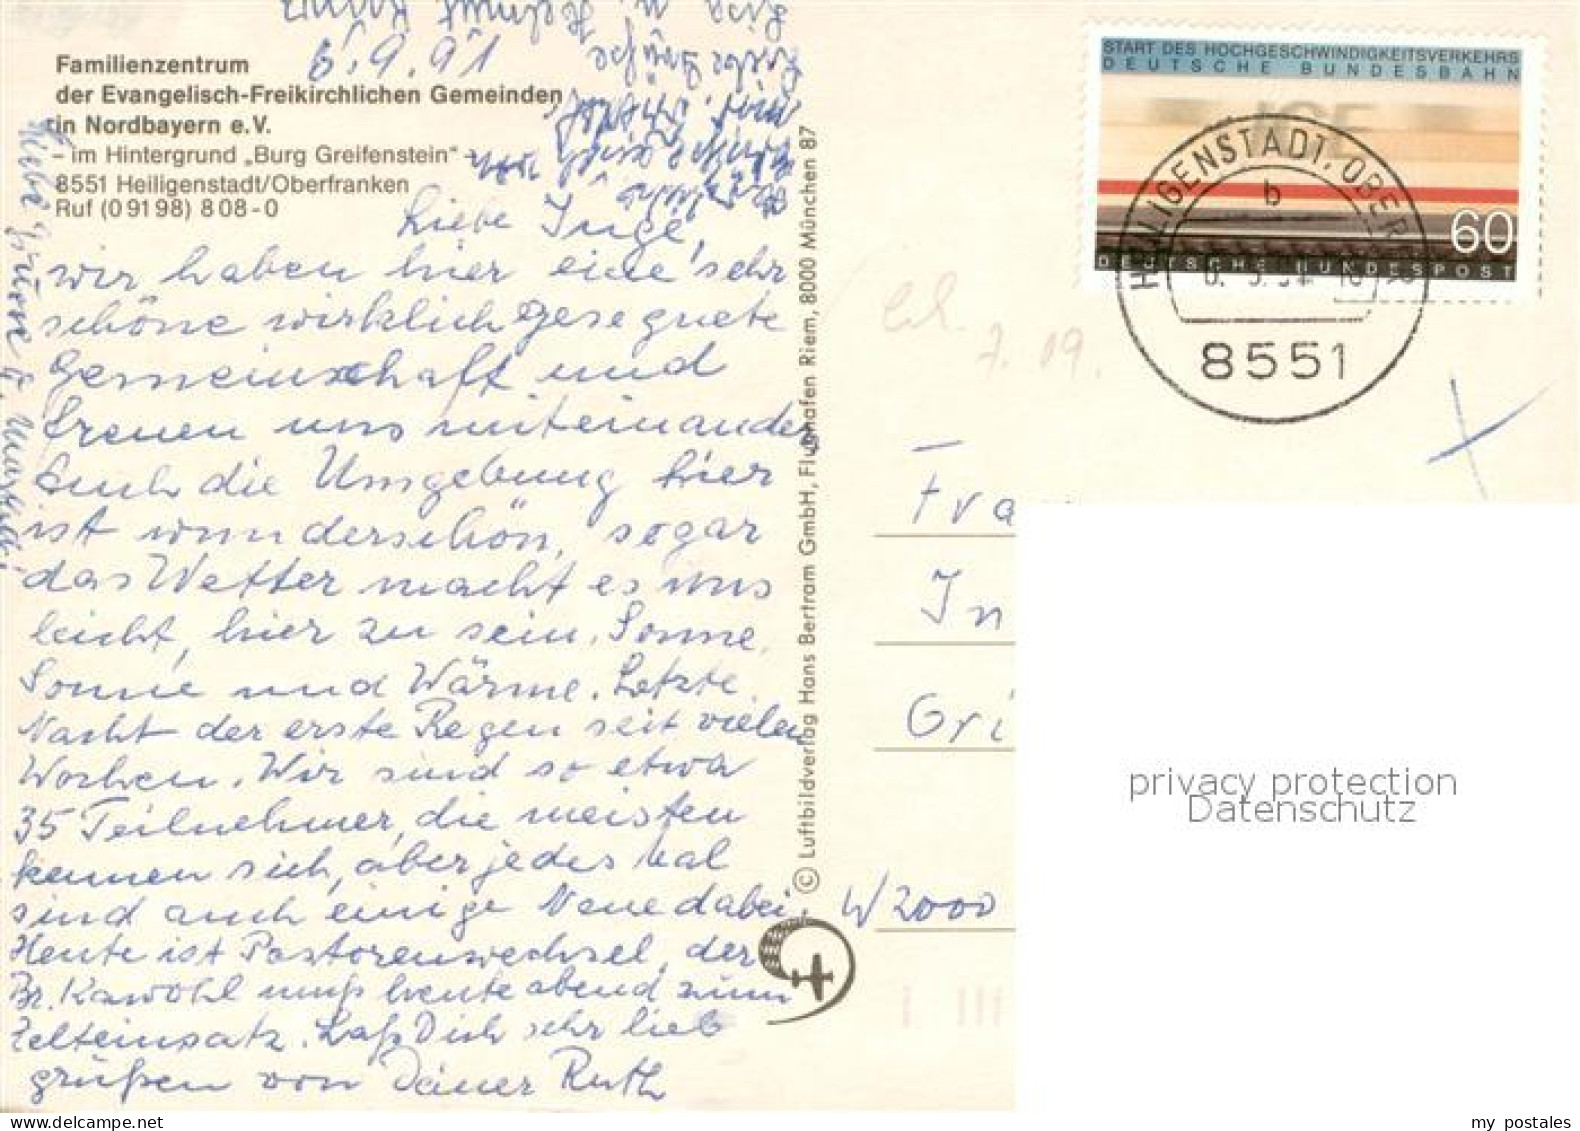 Familienzentrum
der Evangelisch-Freikirchlichen Gemeinden
in Nordbayern e.V.
- im Hintergrund „Burg Greifenstein" -
8551 Heiligenstadt/Oberfranken
Ruf (09198) 808-0
6.9.91
Liebe Inge,
wir haben hier eine sehr
schöne wirklich gesegnete
Gemeinschaft und
freuen uns miteinander
Auch die Umgebung hier
ist wunderschön, sogar
das Wetter macht es uns
leicht, hier zu sein. Sonne,
Sonne und Wärme. Letzte
Nacht der erste Regen seit vielen
Wochen. Wir sind so etwa
35 Teilnehmer, die meisten
kennen sich, aber jedes Mal
sind auch einige Neue dabei.
Heute ist Pastorenwechsel, der
Br. Kawohl muß heute abend zum
Zelteinsatz. Laß Dich sehr lieb
grüßen von Deiner Ruth
Liebe Grüße
Lisa u. Helmut
© Luftbildverlag Hans Bertram GmbH, Flughafen Riem, 8000 München 87
START DES HOCHGESCHWINDIGKEITSVERKEHRS
DEUTSCHE BUNDESBAHN
ICE
60
DEUTSCHE BUNDESPOST
HEILIGENSTADT, OBERFR
b
8551
7.09.
Fra
In
Gri
W 2000
privacy protection
Datenschutz
my postales